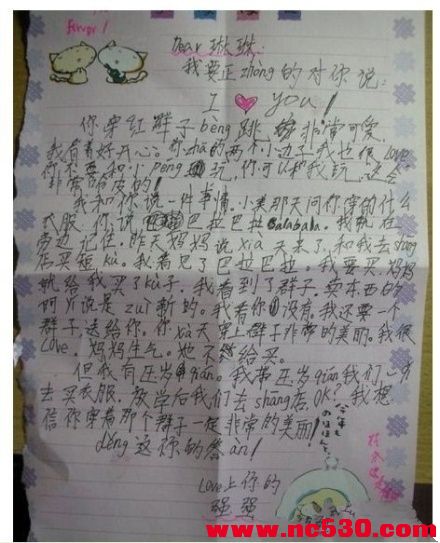 forever!
Dear 琳琳:
我要正zhòng的对你说:
I ♥ you!
你穿红群子bèng跳 非常可爱,
我看看好开心。你zhā的两个小边子我也很Love。
你不要和小pèng玩,你可以和我玩,他会
非常 皮的!
我和你说一件事情。小美那天问你穿的什么
衣服,你说 巴拉巴拉Balabala。我就在
旁边记住。昨天妈妈说xià天来了,和我去shāng
店买短kù。我看见了巴拉巴拉。我要买,妈妈
就给我买了kù子。我看到了群子,卖东西的
阿yí说是zuì新的。我看你 没有。我还要一个
群子送给你。你xià天穿上群子非常的美丽。我很
Love。妈妈生气。她不 给买。
但我有压岁qián。我带压岁qián我们一方
去买衣服。放学后我们去shāng店。OK?我想
信你穿着那个群子一定非常的美丽!
děng这你的答àn!
Love上你的
强强
www.nc530.com